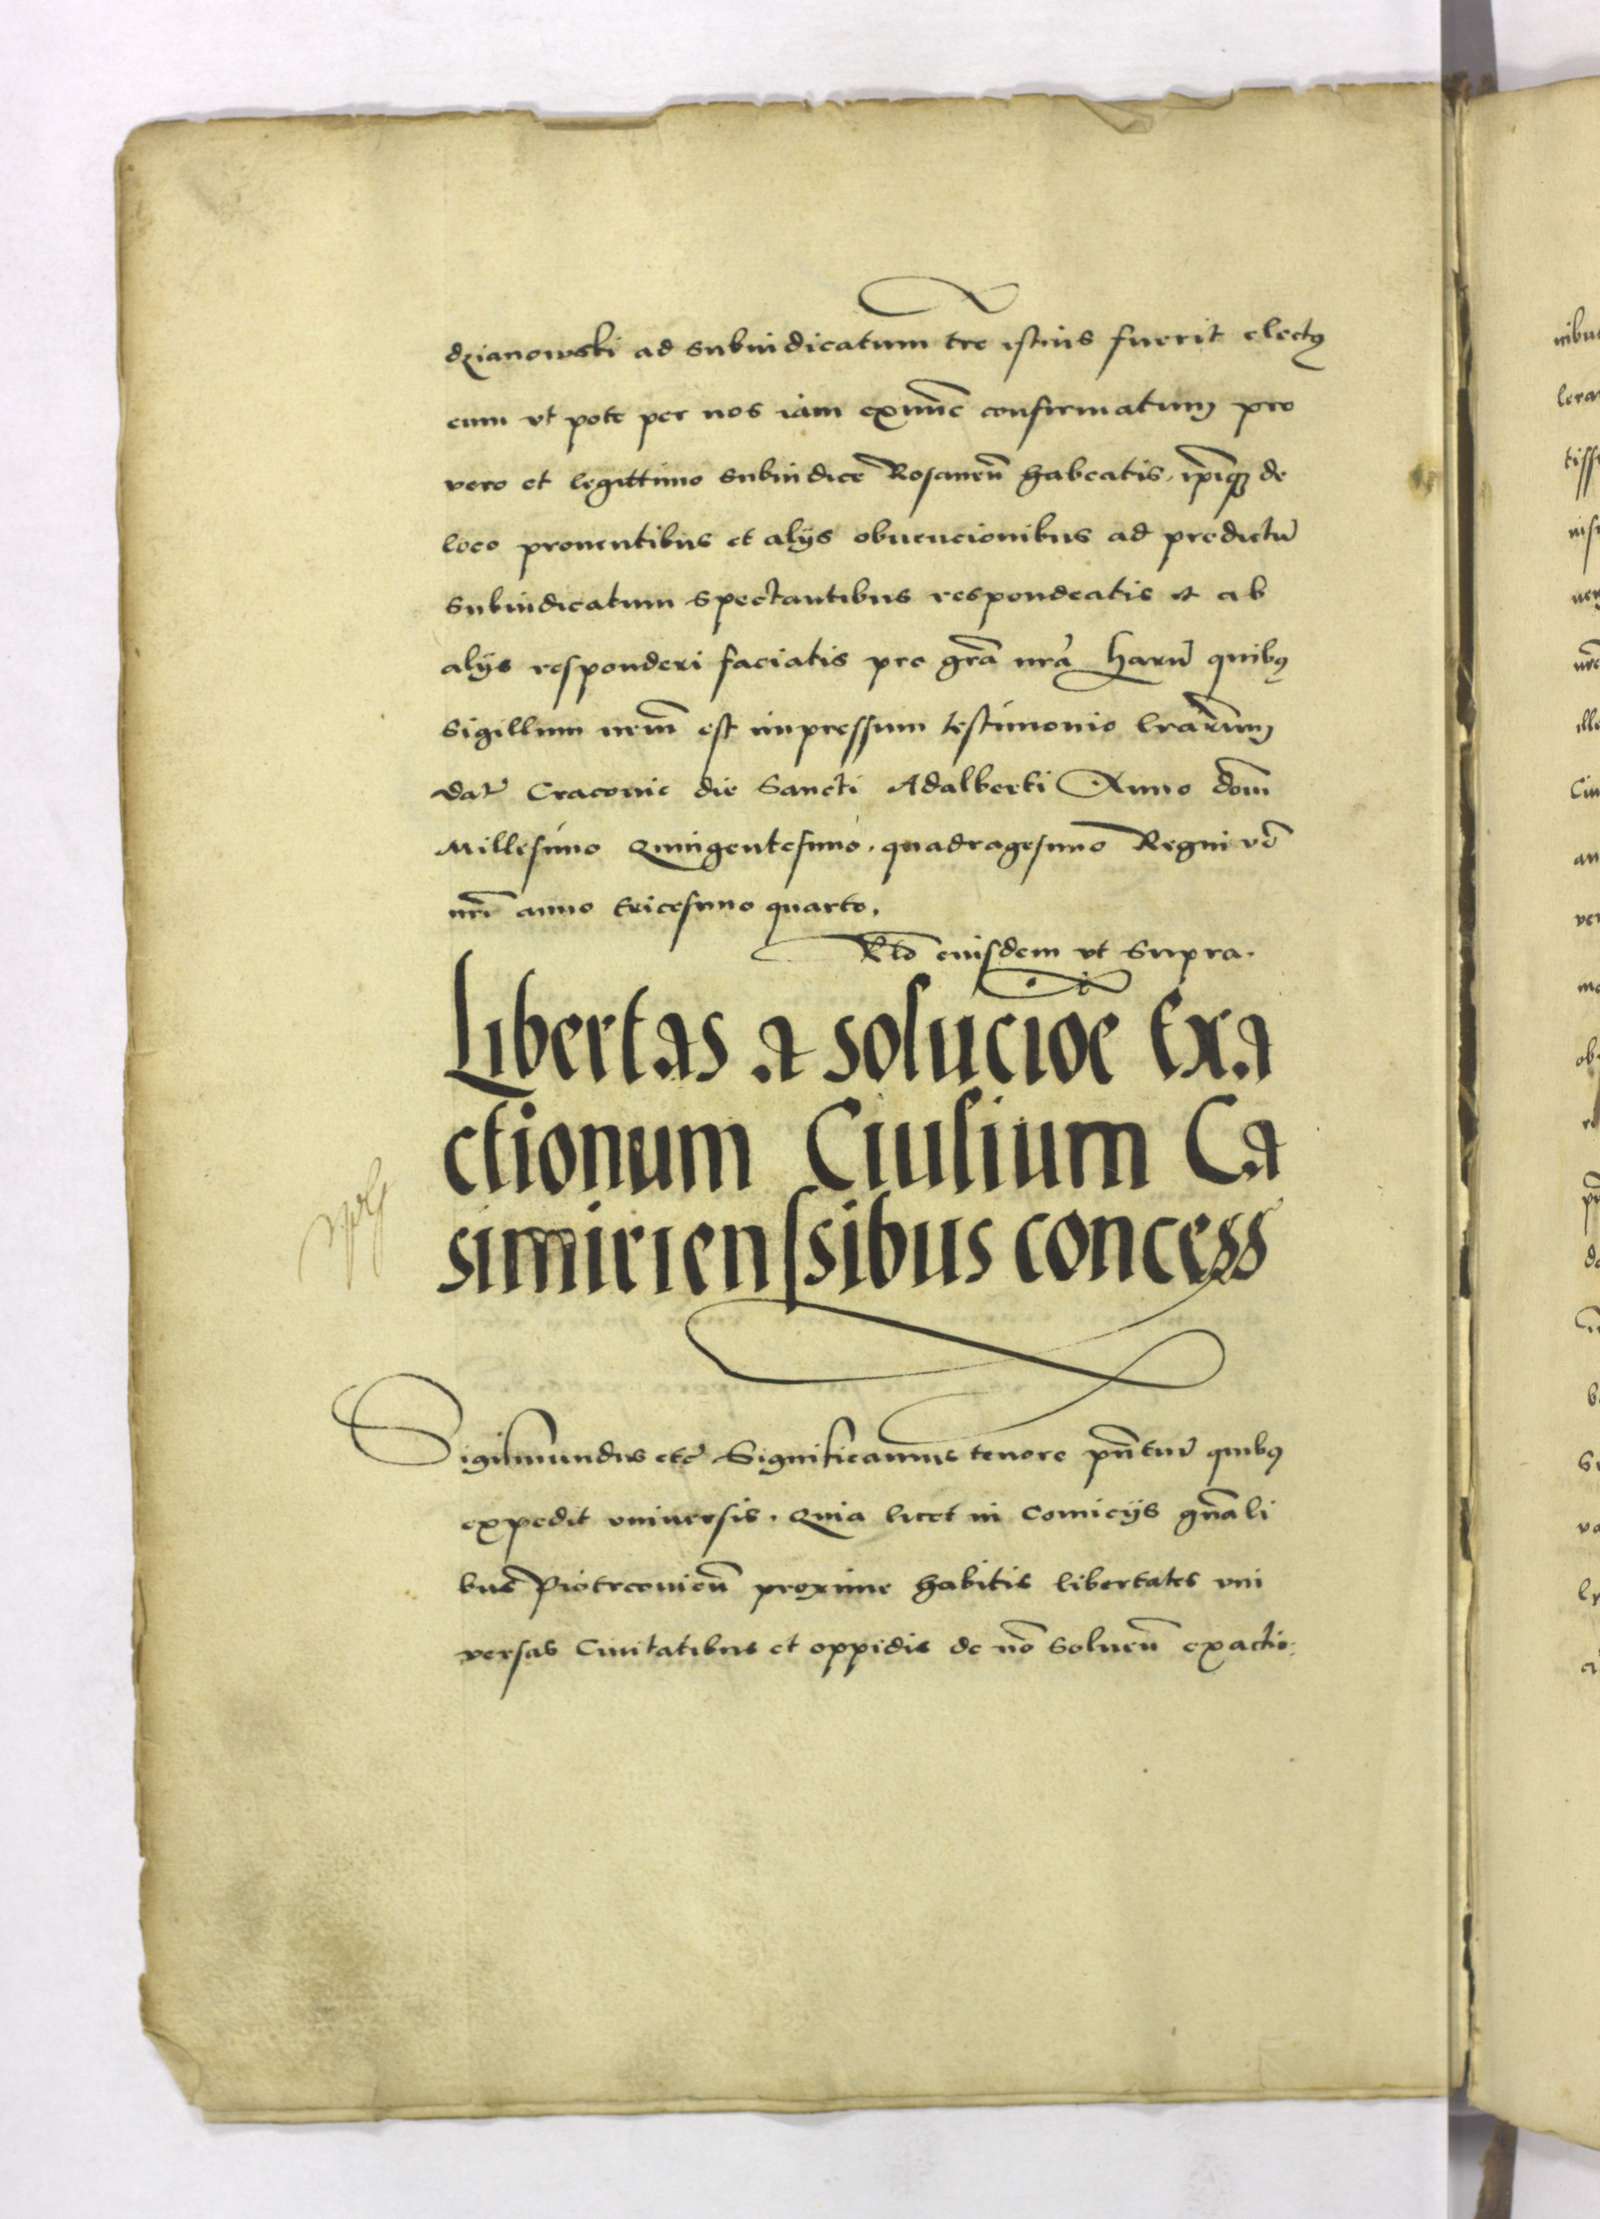 dzianowski ad subiudicatum tre istius fuerit electꝰ
eum vt pote per nos iam exnūc confirmatum pro
vero et legittimo subiudice Rosaneñ habeatis, ip̄iqꝫ de
loco prouentibus et alijs obuencionibus ad predictū
Subiudicatum spectantibus respondeatis et ab
alijs responderi faciatis pro grā nrā Harū quibꝰ
Sigillum nrm̄ est impressum testimonio lrārum
Dat̄ Cracouie die Sancti Adalberti Anno dom̄
Millesimo Quingentesimo, quadragesimo Regni vō
nrī anno tricesimo quarto,
Rlō eiusdem vt Supra.
Libertas a solucioē Exa
ctionum Ciuilium Ca
simirienssibus concess
Sigismundus etc̄ Significamus tenore pn̄tiū quibꝰ
expedit vniuersis. Quia licet in Comicijs gn̄ali
bus Piotrcouieñ proxime habitis libertates vni
versas Ciuitatibus et oppidis de nō solueñ exactio-